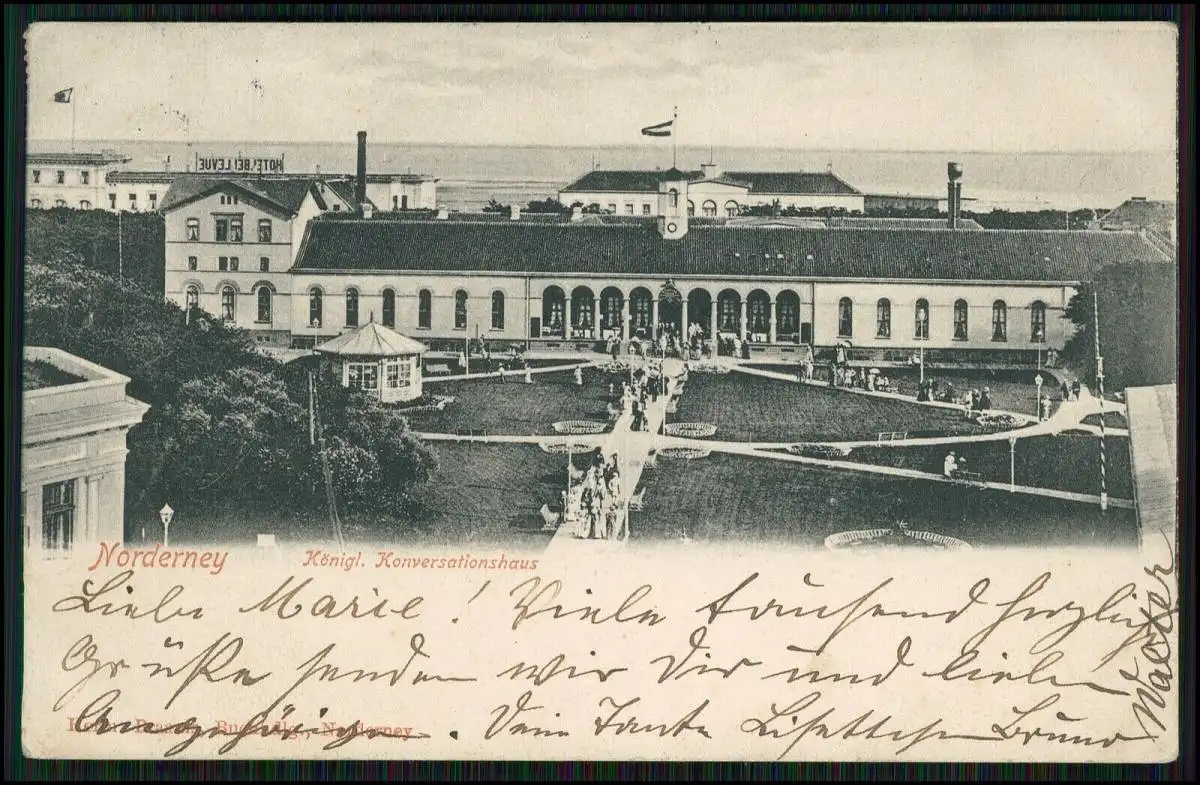 HOTEL BELLEVUE
Norderney Königl. Konversationshaus
Liebe Marie! Viele tausend herzliche
Grüße senden wir Dir und lieben
Angehörigen. Dein Tante Lisettchen Bruno
Walter
Buchhdlg., Norderney